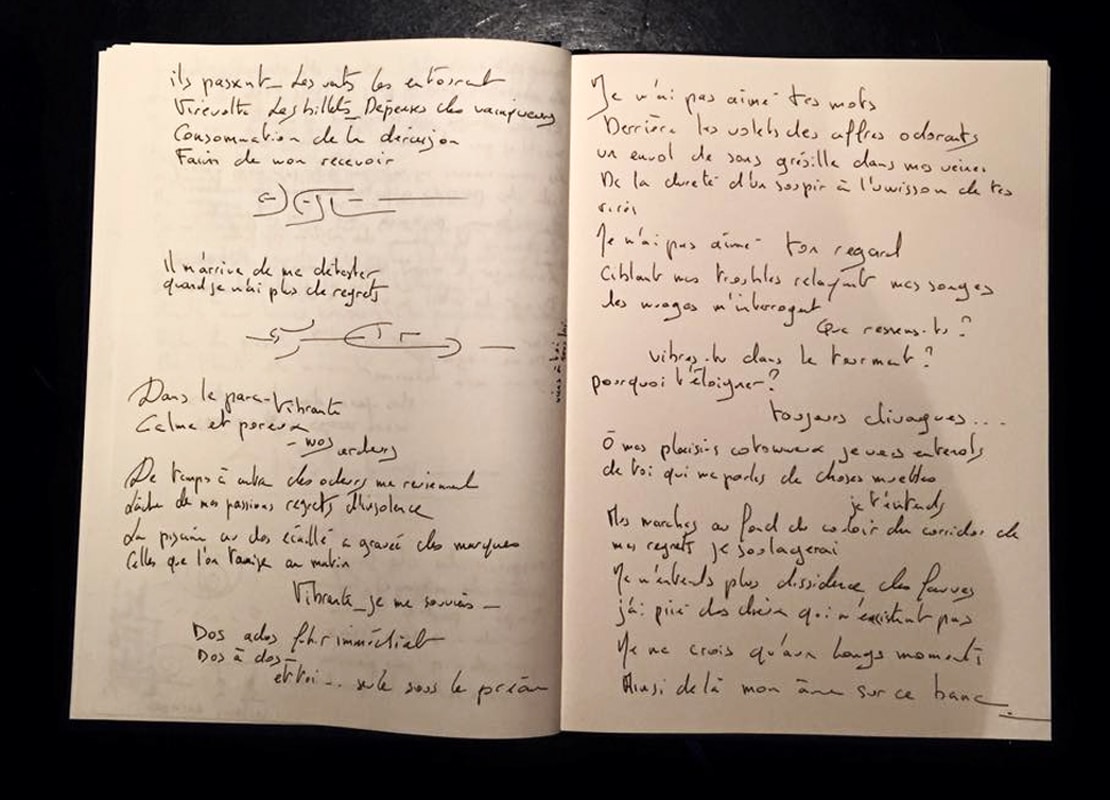 ils passent_ Les vents les
Virevolte Les billets_ Dépenses des vainqueurs
Consommation de la dérision
Faim de non recevoir
Il m'arrive de me détester
quand je n'ai plus de regrets
Dans le parc_ Vibrante
Calme et poreux
- nos ardeurs
De temps à autre des odeurs me reviennent
de mes passions regrets d'insolence
La piscine au dos écaillé a gravé des marques
Celles que l'on au matin
Vibrante_ je me souviens _
Dos ados futur immédiat
Dos à dos_
et toi... seule sous le préau
viens à toi
sous toi
Je n'ai pas aimé tes mots
Derrière les volets des affres odorants
un envol de sons grésille dans mes veines
De la dureté d'un soupir à l'unisson de tes
rires
Je n'ai pas aimé ton regard
Ciblant mes troubles relayant mes songes
les nuages m'interrogent
Que ressens-tu ?
vibres-tu dans le tourment ?
pourquoi t'éloigner ?
toujours divagues...
Ô mes plaisirs cotonneux je vous entends
de toi qui me parles de choses muettes
je t'entends
Mes marches au fond du couloir du corridor de
mes regrets je soulagerai
Je n'entends plus dissidence des fauves
j'ai prié des dieux qui n'existent pas
Je ne crois qu'aux longs moments
Ainsi de là mon âme sur ce banc_